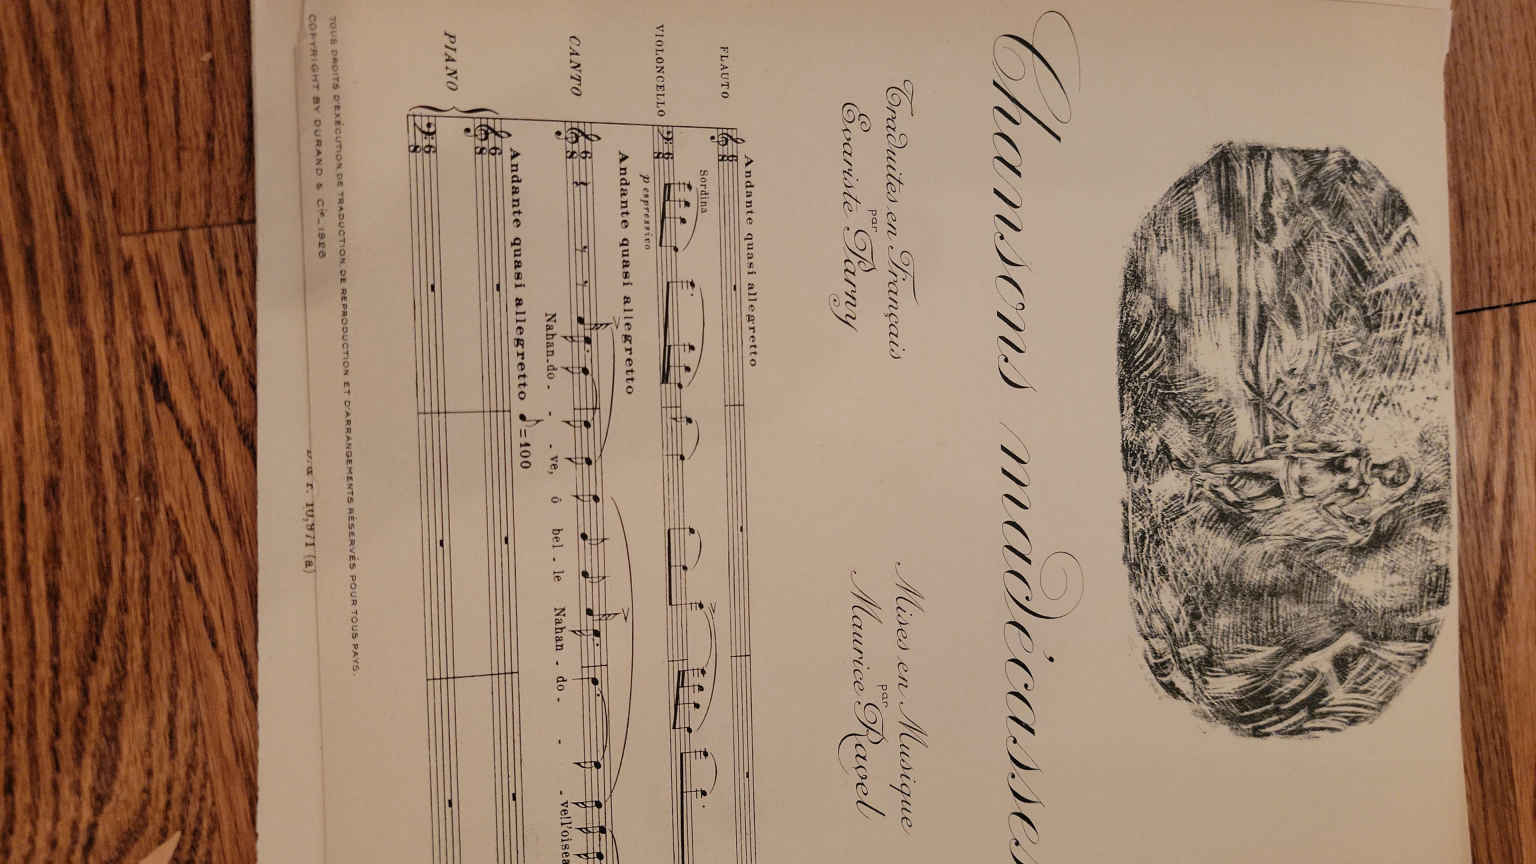 Chansons madécasses
Traduites en Français
par
Evariste Parny
Mises en Musique
par
Maurice Ravel
Andante quasi allegretto
FLAUTO
Sordina
VIOLONCELLO
p espressivo
Andante quasi allegretto
CANTO
Nahan-do - - - ve, ô bel - le Nahan - do - - - ve! l'oisea
Andante quasi allegretto ♪=100
PIANO
TOUS DROITS D'EXÉCUTION, DE TRADUCTION, DE REPRODUCTION ET D'ARRANGEMENTS RÉSERVÉS POUR TOUS PAYS.
COPYRIGHT BY DURAND & Cie_1926
10,971 (a)